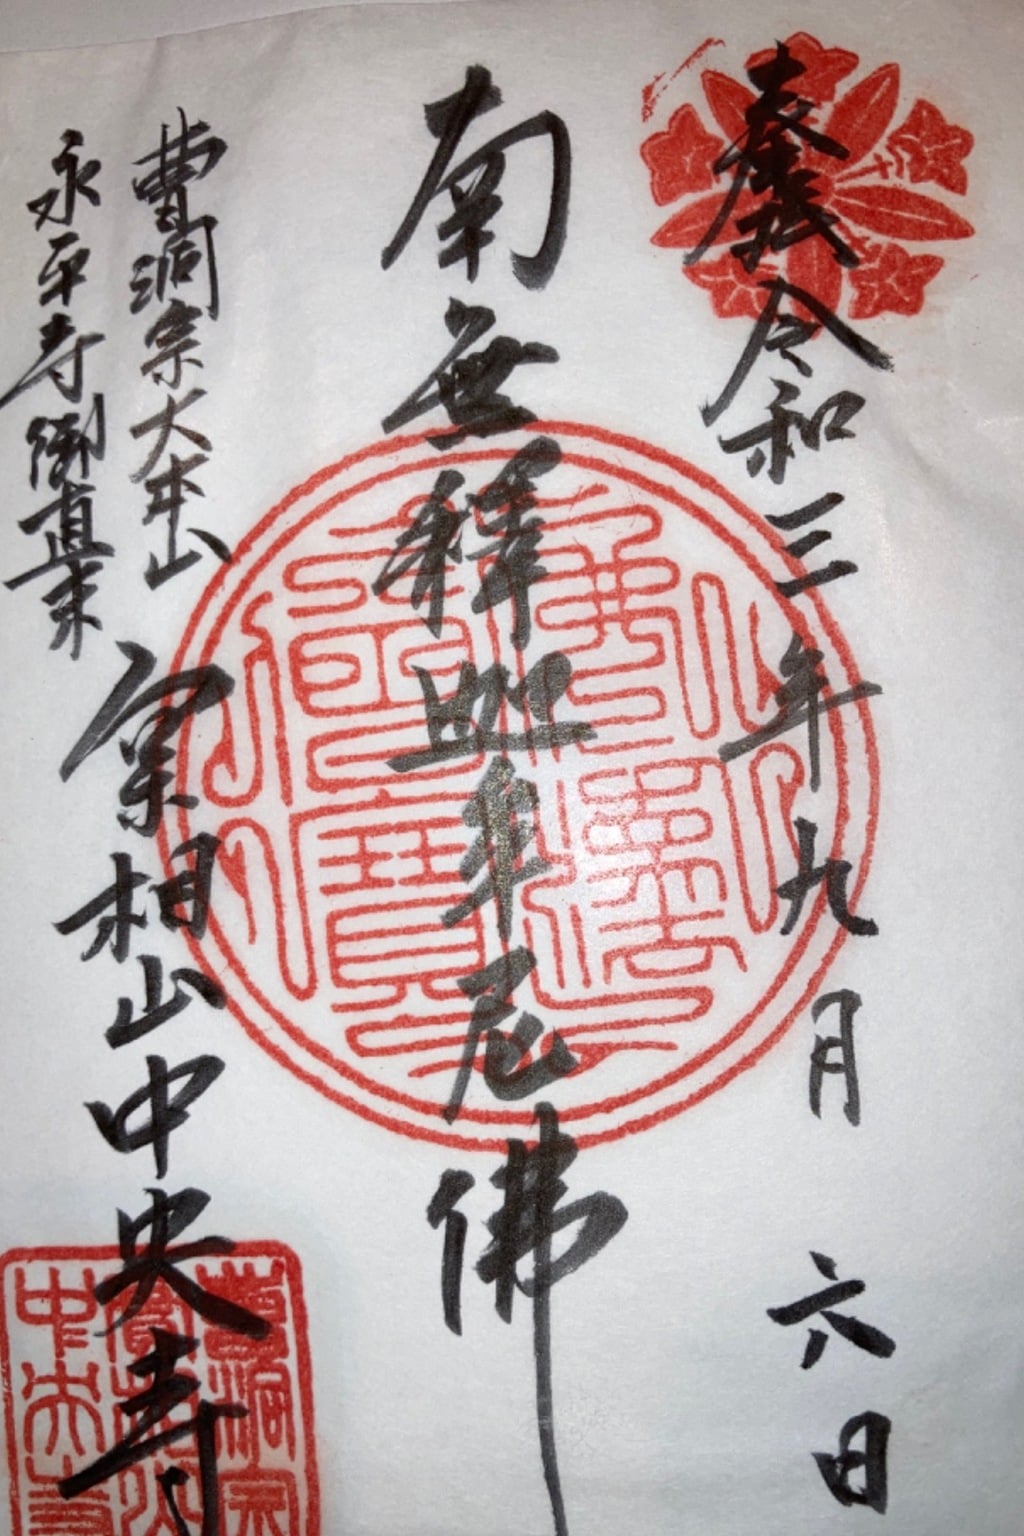 奉拝 令和三年九月六日
南無釋迦牟尼佛
曹洞宗大本山
永平寺御直末
實相山中央寺
曹洞宗
中央寺